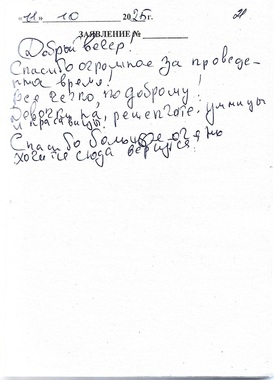 «11» 10 2025г. 21
ЗАЯВЛЕНИЕ №
Добрый вечер!
Спасибо огромное за проведе-
нна время!
Все чётко, по доброму!
Девочки на, рецепшоте, умницы
и красавицы!
Спасибо большое очень
хочется сюда вернутся!